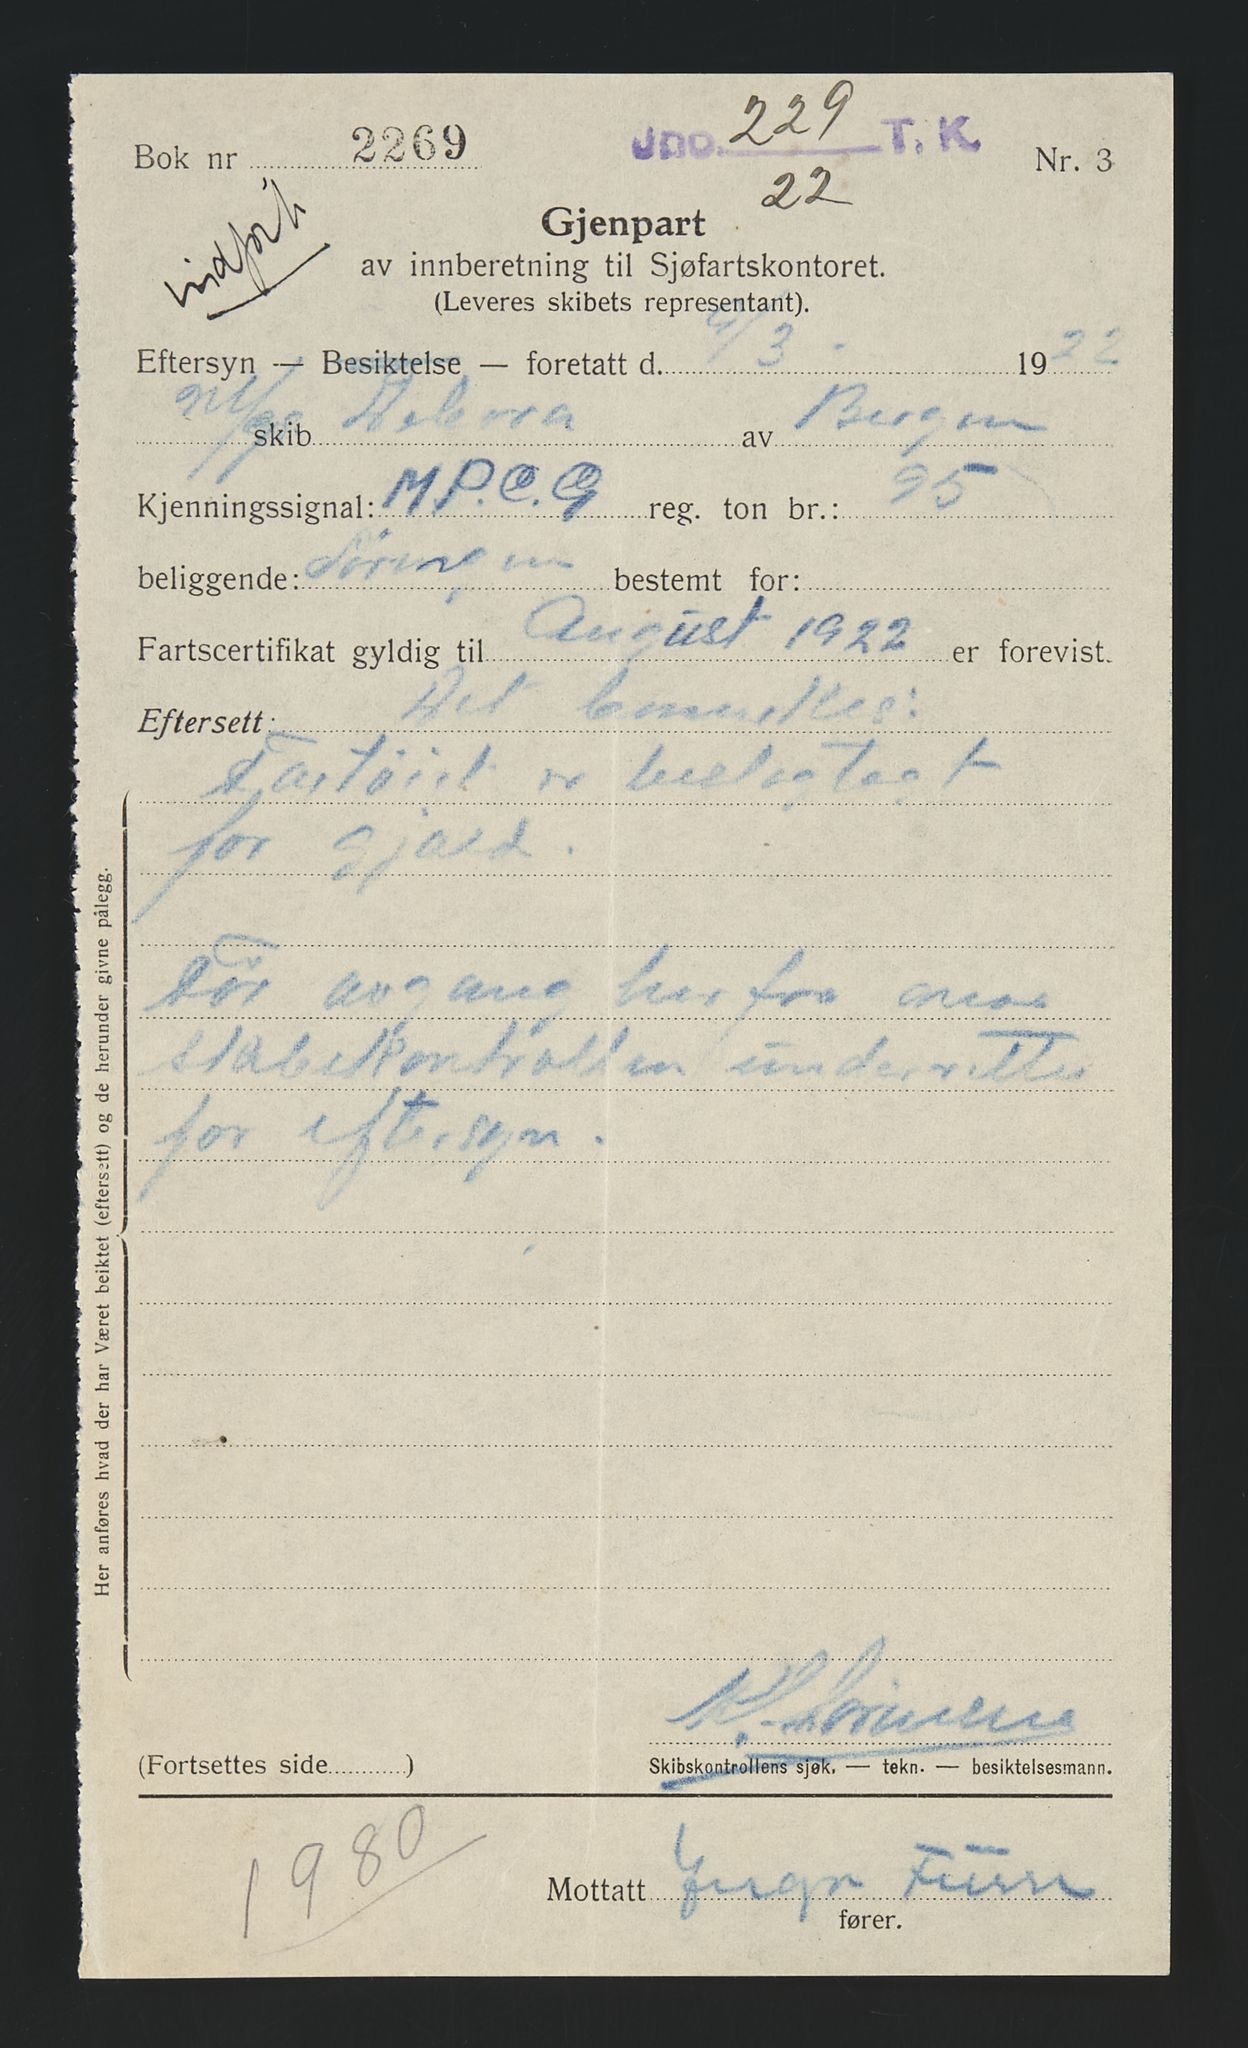 Bok nr 2269 Jno. 229 T. K. Nr. 3
22
indført
Gjenpart
av innberetning til Sjøfartskontoret.
(Leveres skibets representant).
Eftersyn — Besiktelse — foretatt d. 4/3 - 1922
skib av Bergen
Kjenningssignal: M.P.C.G reg. ton br.: 95
beliggende: bestemt for:
Fartscertifikat gyldig til August 1922 er forevist.
Eftersett: Det bemerkes:
Fartøiet er beslagtagt
for gjæld.
Før avgang herfra maa
skibskontrollen underrettes
for eftersyn.
Her anføres hvad der har Været beiktet (eftersett) og de herunder givne pålegg.
(Fortsettes side ) Skibskontrollens sjøk. — tekn. — besiktelsesmann.
1980
Mottatt
fører.